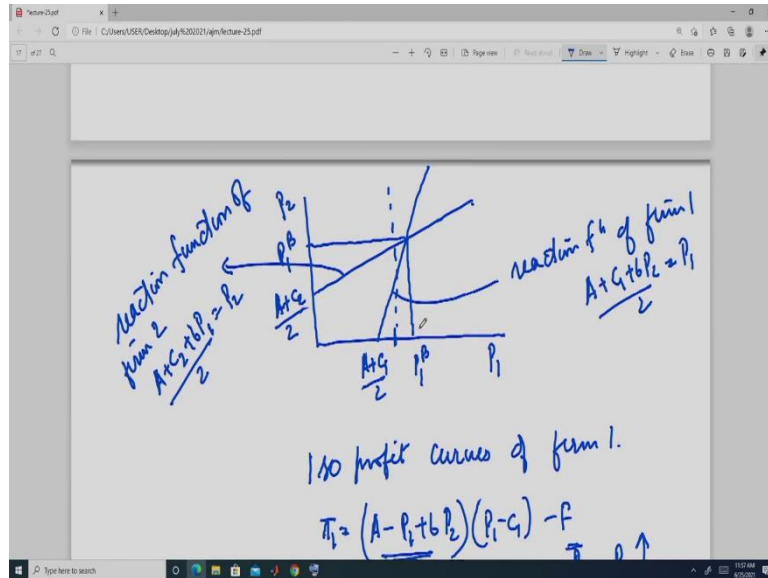 *lecture-25.pdf
File | C:/Users/USER/Desktop/july%202021/ajm/lecture-25.pdf
17 of 27
Page view
Read aloud
Draw
Highlight
Erase
reaction function of
firm 2
A+C2+bP1 = P2
2
P2
P1^B
A+C2
2
A+C1
2
P1^B
P1
reaction fn of firm 1
A+C1+bP2 = P1
2
Iso profit curves of firm 1.
π1 = (A-P1+bP2)(P1-C1) -F
Type here to search
11:57 AM
6/25/2021